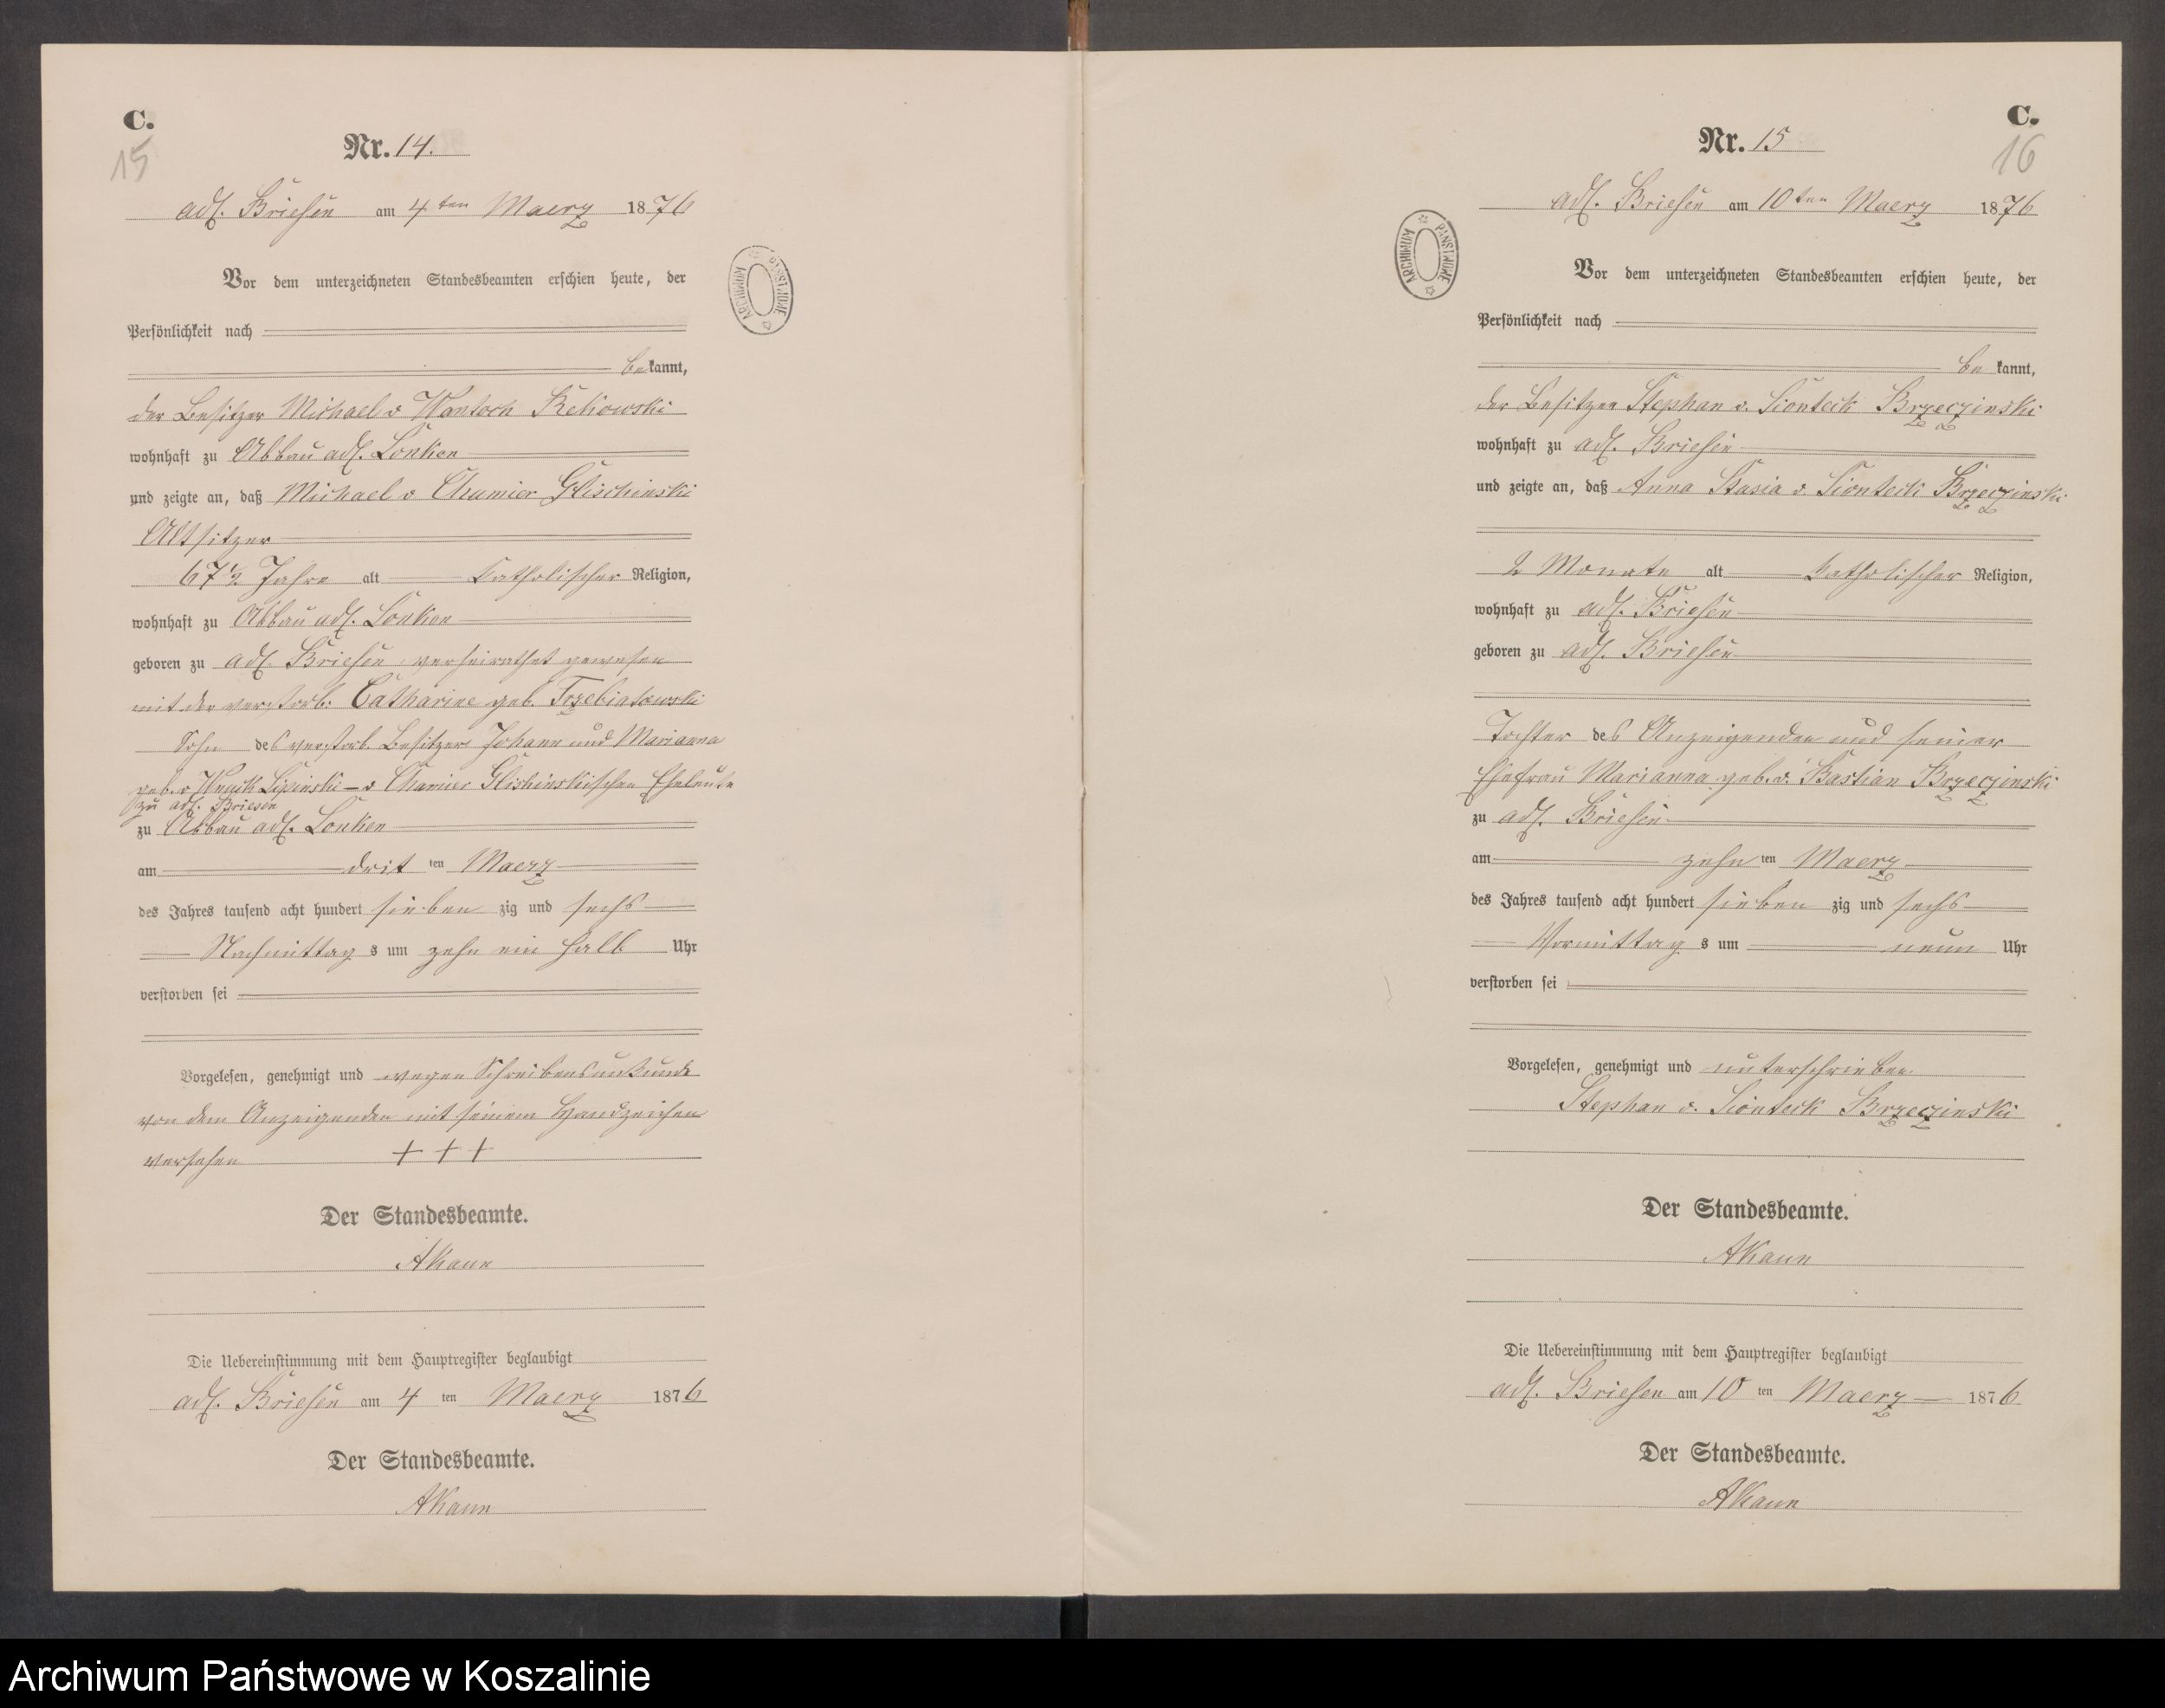 C.
15
Nr. 14.
adl. Briesen am 4ten Maerz 1876
Vor dem unterzeichneten Standesbeamten erschien heute, der
Persönlichkeit nach
bekannt,
der Besitzer Michael v Wantoch Rekowski
wohnhaft zu Abbau adl. Lonken
und zeigte an, daß Michael v Chamier Glischinski
Altsitzer
67 1/2 Jahre alt katholischer Religion,
wohnhaft zu Abbau adl. Lonken
geboren zu adl. Briesen verheirathet gewesen
mit der verstorb. Catharine geb. Trzebiatowski
Sohn des verstorb. Besitzers Johann und Marianna
geb. v Lipinski – v Chamier Glishinskischen Eheleute
zu adl. Briesen
zu Abbau adl. Lonken
am dritten Maerz
des Jahres tausend acht hundert siebenzig und sechs
Nachmittags um zehn ein halb Uhr
verstorben sei
Vorgelesen, genehmigt und wegen Schreibensunkunde
von dem Anzeigenden mit seinem Handzeichen
versehen +++
Der Standesbeamte.
AKaun
Die Uebereinstimmung mit dem Hauptregister beglaubigt
adl. Briesen am 4ten Maerz 1876
Der Standesbeamte.
AKaun
ARCHIWUM PAŃSTWOWE
C.
16
Nr. 15
adl. Briesen am 10ten Maerz 1876
Vor dem unterzeichneten Standesbeamten erschien heute, der
Persönlichkeit nach
bekannt,
der Besitzer Stephan v. Sionteck Brzeczinski
wohnhaft zu adl. Briesen
und zeigte an, daß Anna Stasia v. Sionteck Brzeczinski
2 Monate alt katholischer Religion,
wohnhaft zu adl. Briesen
geboren zu adl. Briesen
Tochter des Anzeigenden und seiner
Ehefrau Marianna geb. v. Bastian Brzeczinski
zu adl. Briesen
am zehnten Maerz
des Jahres tausend acht hundert siebenzig und sechs
Vormittags um neun Uhr
verstorben sei
Vorgelesen, genehmigt und unterschrieben
Stephan v. Sionteck Brzeczinski
Der Standesbeamte.
AKaun
Die Uebereinstimmung mit dem Hauptregister beglaubigt
adl. Briesen am 10ten Maerz 1876
Der Standesbeamte.
AKaun
ARCHIWUM PAŃSTWOWE
Archiwum Państwowe w Koszalinie